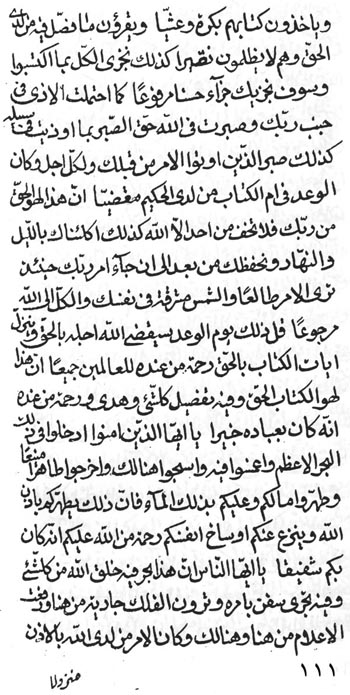 وياخذون كتابهم بكرة وعشيّا ويقرؤن ما فصّل فيه من لدى
الحق وهم لا يظلمون نقيرا كذلك نجزى الكل بما اكتسبوا
وسوف نجزيك جزآء حسنا مرفوعا كما احتملت الاذى فى
جنب ربّك وصبرت فى الله حقّ الصّبر بما اوذيت فى سبيله
كذلك صبر الذّين اوتوا الامر من قبلك ولكلّ اجل وكان
الوعد فى ام الكتاب من لدى الحكيم مقضيّا انّ هذا لهو الحق
من ربّك فلا تخف من احد الّا الله كذلك اكلئناك بالليل
والنّهار ونحفظك من بعد الى ان جآء امر ربّك حينئذ
ترى الامر طالعا والشمس مشرقة فى نفسك والكلّ الى الله
مرجوعا قل ذلك يوم الوعد سيقضى الله اجله بالحق وينزل
ايات الكتاب بالحقّ رحمة من عنده للعالمين جميعا انّ هذا
لهو الكتاب الحق وفيه تفصيل كلشئ وهدى ورحمة من عنده
انّه كان بعباده خبيرا يا ايّها الذّين امنوا ادخلوا فى ذلك
البحر الاعظم واغمسوا فيه واسبحوا هنالك واخرجوا طاهرا منيعا
وطهّروا مالكم وعليكم بذلك المآء فانّ ذلك يطهّركم باذن
الله وينزع عنكم اوساخ انفسكم رحمة من الله عليكم انّه كان
بكم شفيقا يا ايّها النّاس انّ هذا لبحر فيه خلق الله من كلشئ
وفيه تجرى سفن بامره وترون الفلك جارية من هنا ورفعت
الاعلام من هنا وهنالك وكان الامر من لدى الله بالاذن
منزولا
١١١